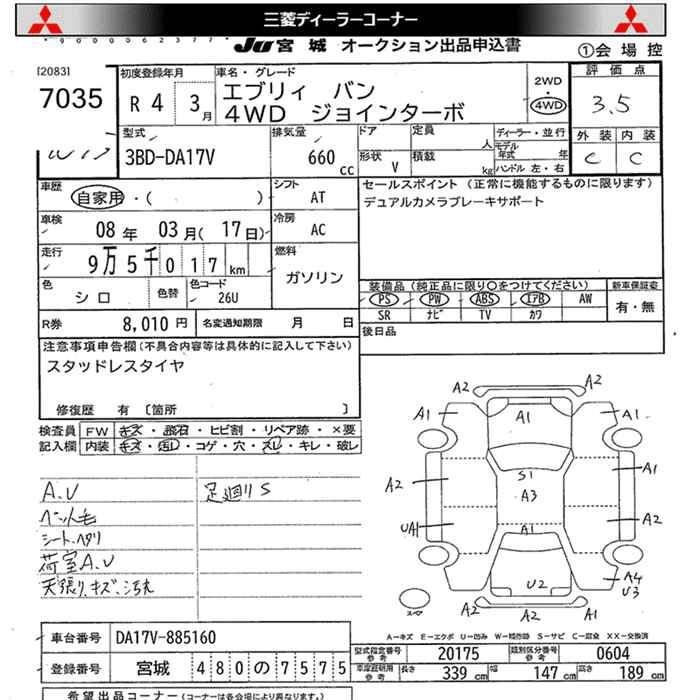 三菱ディーラーコーナー
JU 宮城 オークション出品申込書
①会場控
[2083]
7035
初度登録年月 R 4 3月
車名・グレード
エブリィ バン
4WD ジョインターボ
2WD
・
4WD
評価点
3.5
外装 内装
C C
型式
3BD-DA17V
排気量
660 cc
ドア
形状 V
定員 人
積載 kg
ディーラー・並行
モデル年式 年
ハンドル 左・右
車歴 自家用・( )
シフト AT
セールスポイント (正常に機能するものに限ります)
デュアルカメラブレーキサポート
車検 08年 03月(17日)
冷房 AC
走行 9万5千017km
燃料 ガソリン
色 シロ 色替 色コード 26U
装備品(純正品に限り○をつけてください)
PS PW ABS エアB AW
SR ナビ TV カワ
新車保証書
有・無
R券 8,010円 名変通知期限 月 日
後日品
注意事項申告欄(不具合内容等は具体的に記入して下さい)
スタッドレスタイヤ
修復歴 有 [箇所 ]
検査員 FW キズ・飛石・ヒビ割・リペア跡・×要
記入欄 内装 キズ・汚れ・コゲ・穴・スレ・キレ・破レ
A.U 足廻りS
ペット毛
シート.ヘタリ
荷室A.U
天張り.キズ.汚れ
A2 A2
A1 A1 A1
S1
A2 A3 A1
UA1 A1 A2
U2 A4
U3
A2 A2 A1
A-キズ E-エクボ U-凹み W-補修跡 S-サビ C-腐食 XX-交換済
車台番号 DA17V-885160
登録番号 宮城 480の7575
型式指定番号 参考 20175 類別区分番号 参考 0604
車庫証明用 参考 長さ 339cm 幅 147cm 高さ 189cm
希望出品コーナー(コーナーは各会場により異なります。)